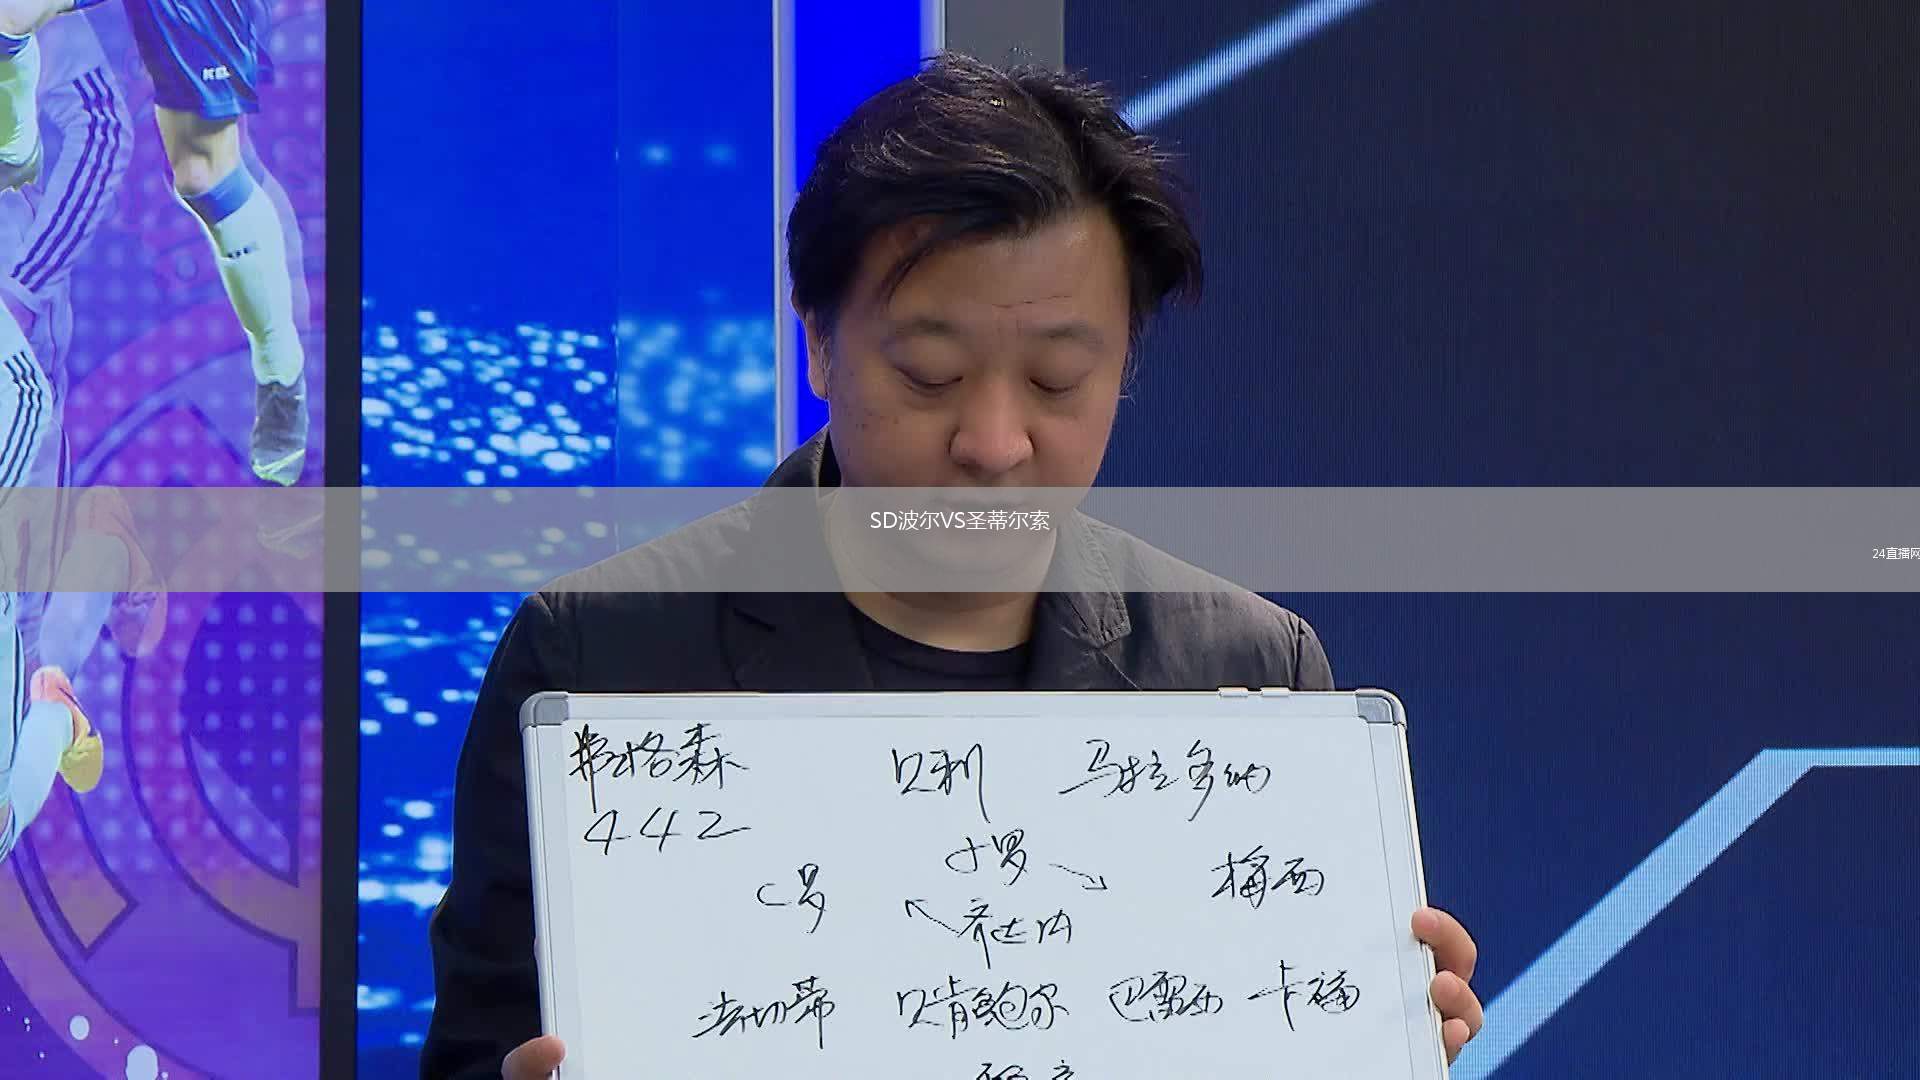 SD波尔VS圣蒂尔索
24直播网
弗格森
贝利 马拉多纳
442
小罗
C罗 梅西
齐达内
法切蒂 贝肯鲍尔 巴雷西 卡福